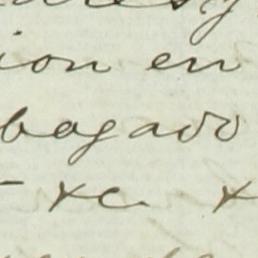 ion en
bogado
&c. &